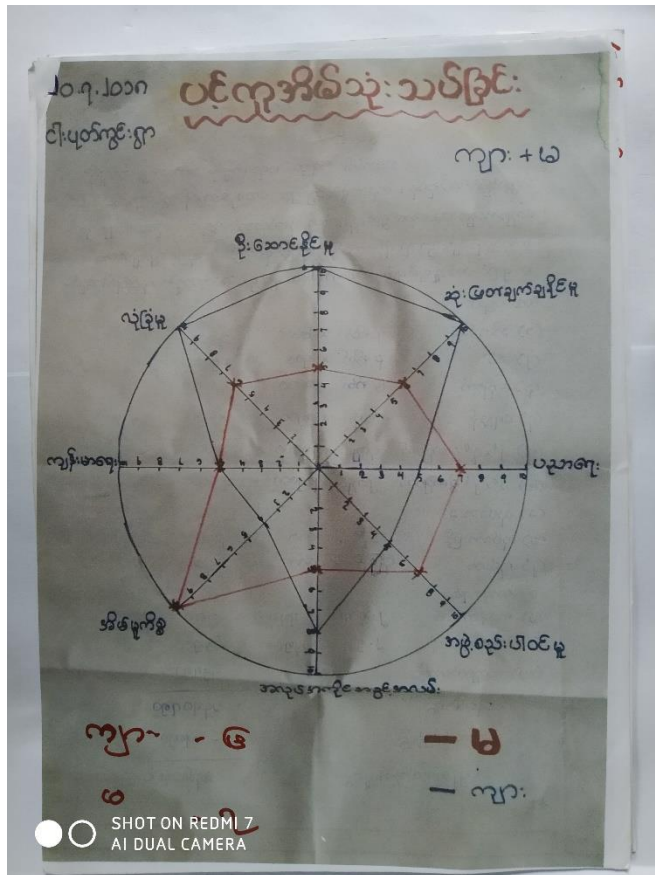 ၂၀.၇.၂၀၁၈
ပင့်ကူအိမ်သုံးသပ်ခြင်း
ငါးပုတ်ကွင်းရွာ
ကျား + မ
ဦးဆောင်နိုင်မှု
ဆုံးဖြတ်ချက်ချနိုင်မှု
လုံခြုံမှု
ကျန်းမာရေး
ပညာရေး
အိမ်မှုကိစ္စ
အဖွဲ့စည်းပါဝင်မှု
အလုပ်အကိုင်အခွင့်အလမ်း
ကျား - ၆
— မ
မ - ၇
— ကျား
SHOT ON REDMI 7
AI DUAL CAMERA